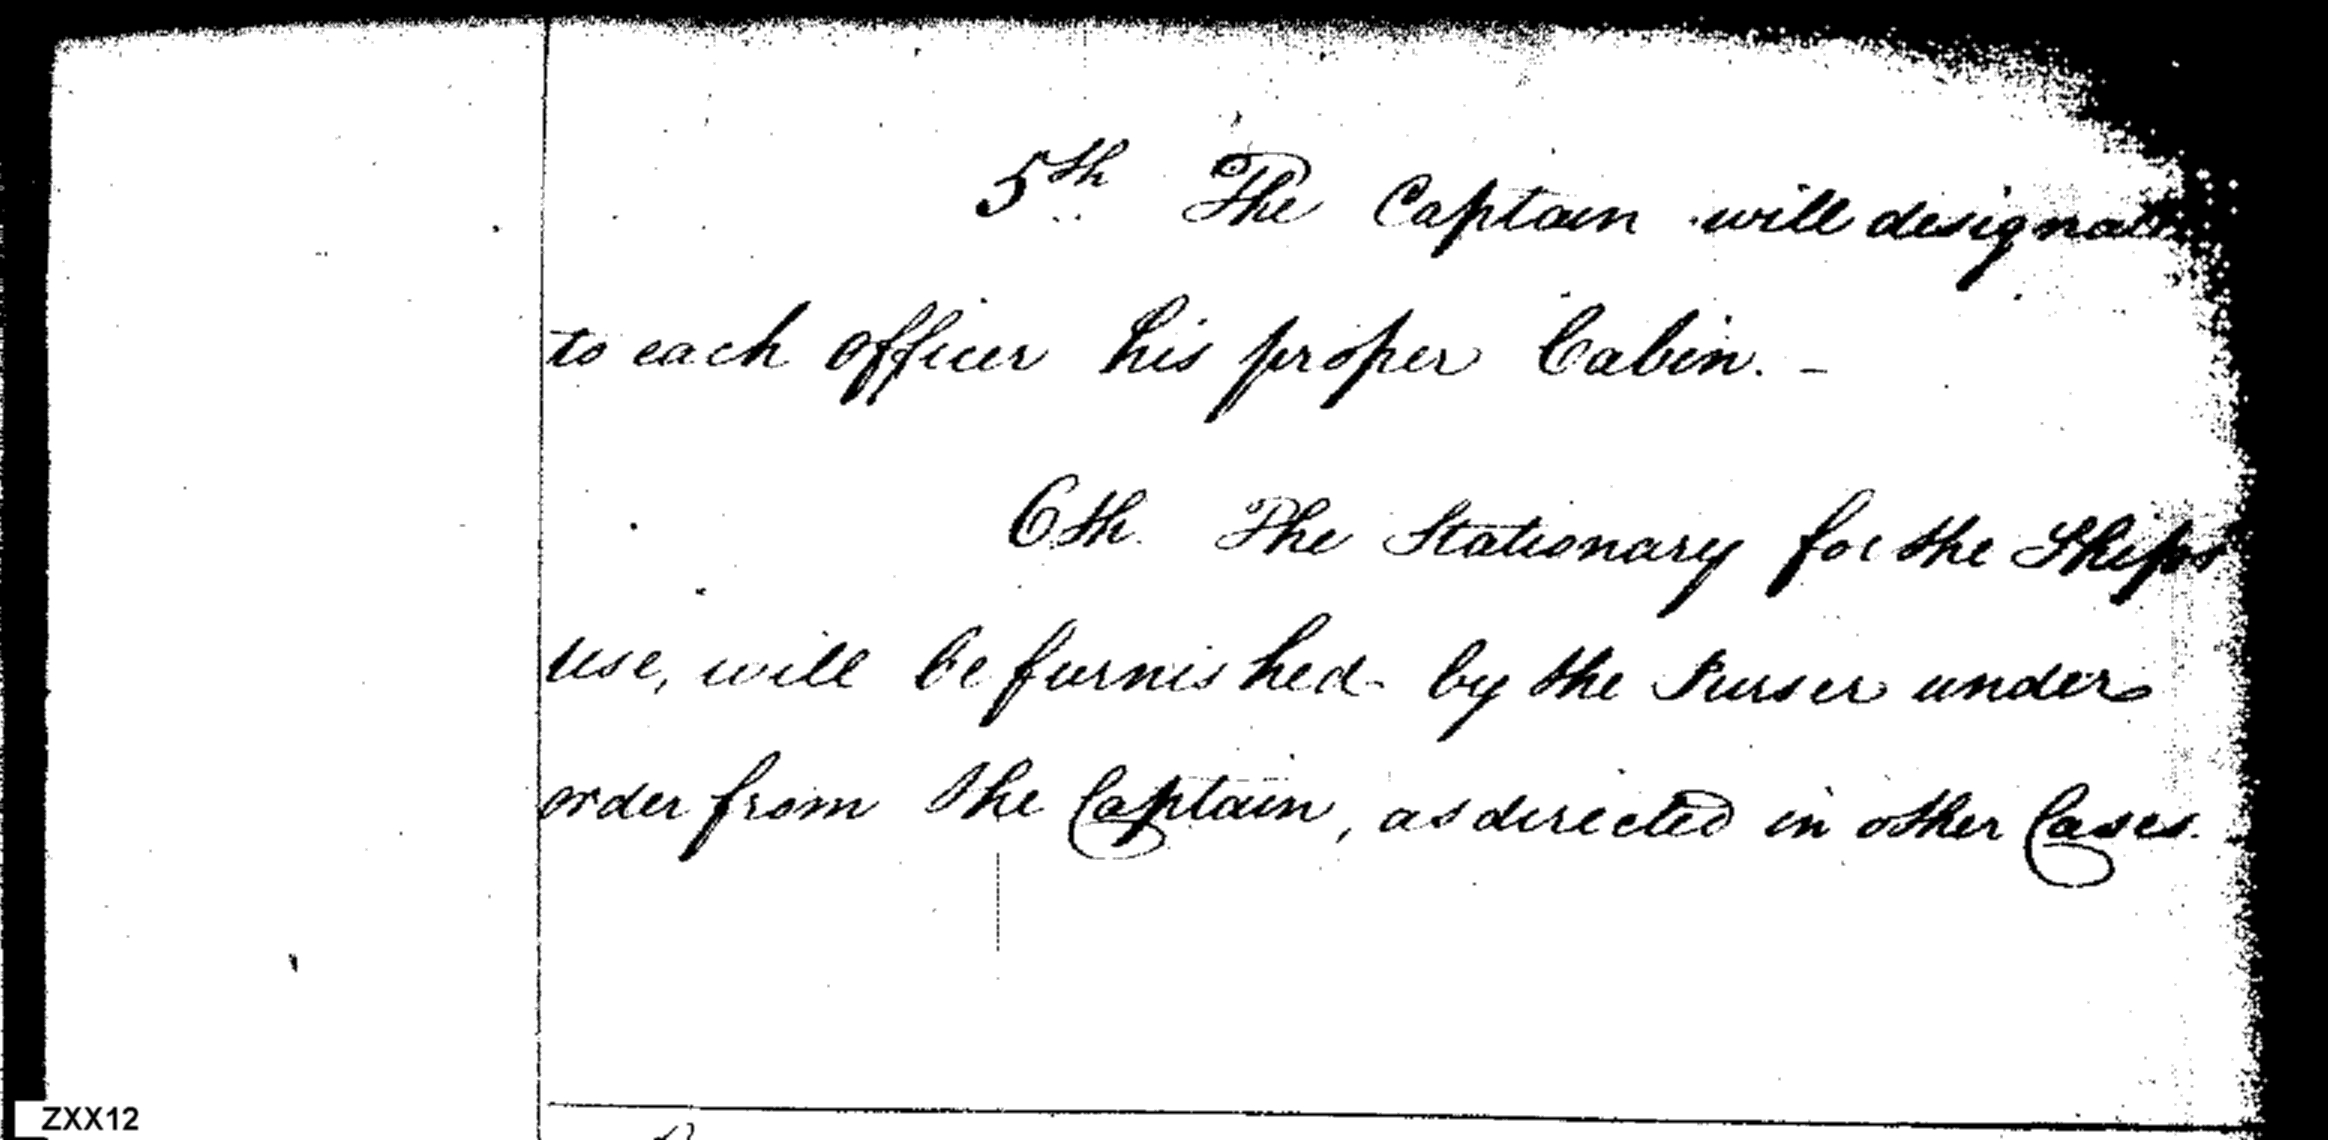 5th The Captain will designate
to each officer his proper Cabin. -
6th. The Stationary for the Ships
use, will be furnished by the Purser under
order from the Captain, as directed in other Cases.
ZXX12